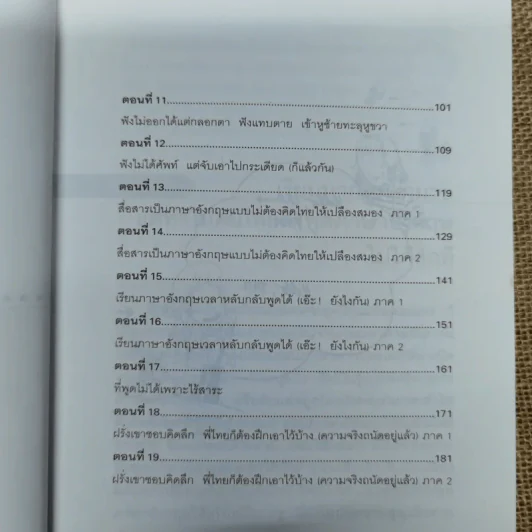 ตอนที่ 11.......................................................................101
ฟังไม่ออกได้แต่กลอกตา ฟังแทบตาย เข้าหูซ้ายทะลุหูขวา
ตอนที่ 12.......................................................................109
ฟังไม่ได้ศัพท์ แต่จับเอาไปกระเดียด (ก็แล้วกัน)
ตอนที่ 13.......................................................................119
สื่อสารเป็นภาษาอังกฤษแบบไม่ต้องคิดไทยให้เปลืองสมอง ภาค 1
ตอนที่ 14.......................................................................129
สื่อสารเป็นภาษาอังกฤษแบบไม่ต้องคิดไทยให้เปลืองสมอง ภาค 2
ตอนที่ 15.......................................................................141
เรียนภาษาอังกฤษเวลาหลับกลับพูดได้ (เอ๊ะ! ยังไงกัน) ภาค 1
ตอนที่ 16.......................................................................151
เรียนภาษาอังกฤษเวลาหลับกลับพูดได้ (เอ๊ะ! ยังไงกัน) ภาค 2
ตอนที่ 17.......................................................................161
ที่พูดไม่ได้เพราะไร้สาระ
ตอนที่ 18.......................................................................171
ฝรั่งเขาชอบคิดลึก พี่ไทยก็ต้องฝึกเอาไว้บ้าง (ความจริงถนัดอยู่แล้ว) ภาค 1
ตอนที่ 19.......................................................................181
ฝรั่งเขาชอบคิดลึก พี่ไทยก็ต้องฝึกเอาไว้บ้าง (ความจริงถนัดอยู่แล้ว) ภาค 2